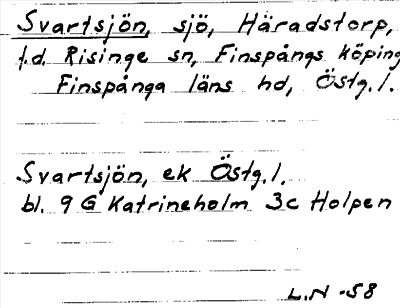 Svartsjön, sjö, Häradstorp,
f.d. Risinge sn, Finspångs köping
Finspånga läns hd, Östg.l.
Svartsjön, ek Östg.l.
bl. 9 G Katrineholm 3c Holpen
L.N -58